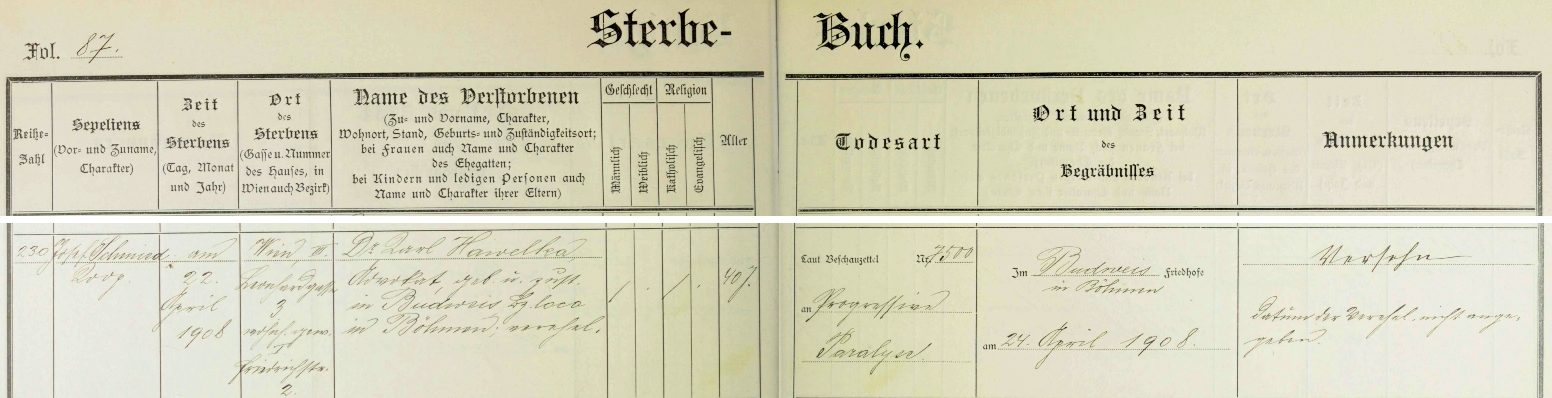 Sterbe-Buch.
Fol. 87.
Reihe-Zahl
Sepeliens
(Vor- und Zuname,
Charakter)
Zeit
des
Sterbens
(Tag, Monat
und Jahr)
Ort
des
Sterbens
(Gasse u. Nummer
des Hauses, in
Wien auch Bezirk)
Name des Verstorbenen
(Zu- und Vorname, Charakter,
Wohnort, Stand, Geburts- und Zuständigkeitsort;
bei Frauen auch Name und Charakter
des Ehegatten;
bei Kindern und ledigen Personen auch
Name und Charakter ihrer Eltern)
Geschlecht
Männlich
Weiblich
Religion
Katholisch
Evangelisch
Alter
Todesart
Ort und Zeit
des
Begräbnisses
Anmerkungen
230
Josef Schmied
Koop.
am
22.
April
1908
Wien, III.
Leonhardgasse
3
wohnh. gew.
I
Friedrichstr.
2.
Dr. Karl Hawelka,
Advokat, geb. u. zust.
in Budweis Bz. loco
in Böhmen; verehel.
/ . / .
40 J.
Laut Beschauzettel Nr. 7500
an Progressive
Paralyse
Im Budweis Friedhofe
in Böhmen
am 24. April 1908.
Versehn
Datum der Verehel. nicht ange-
geben.